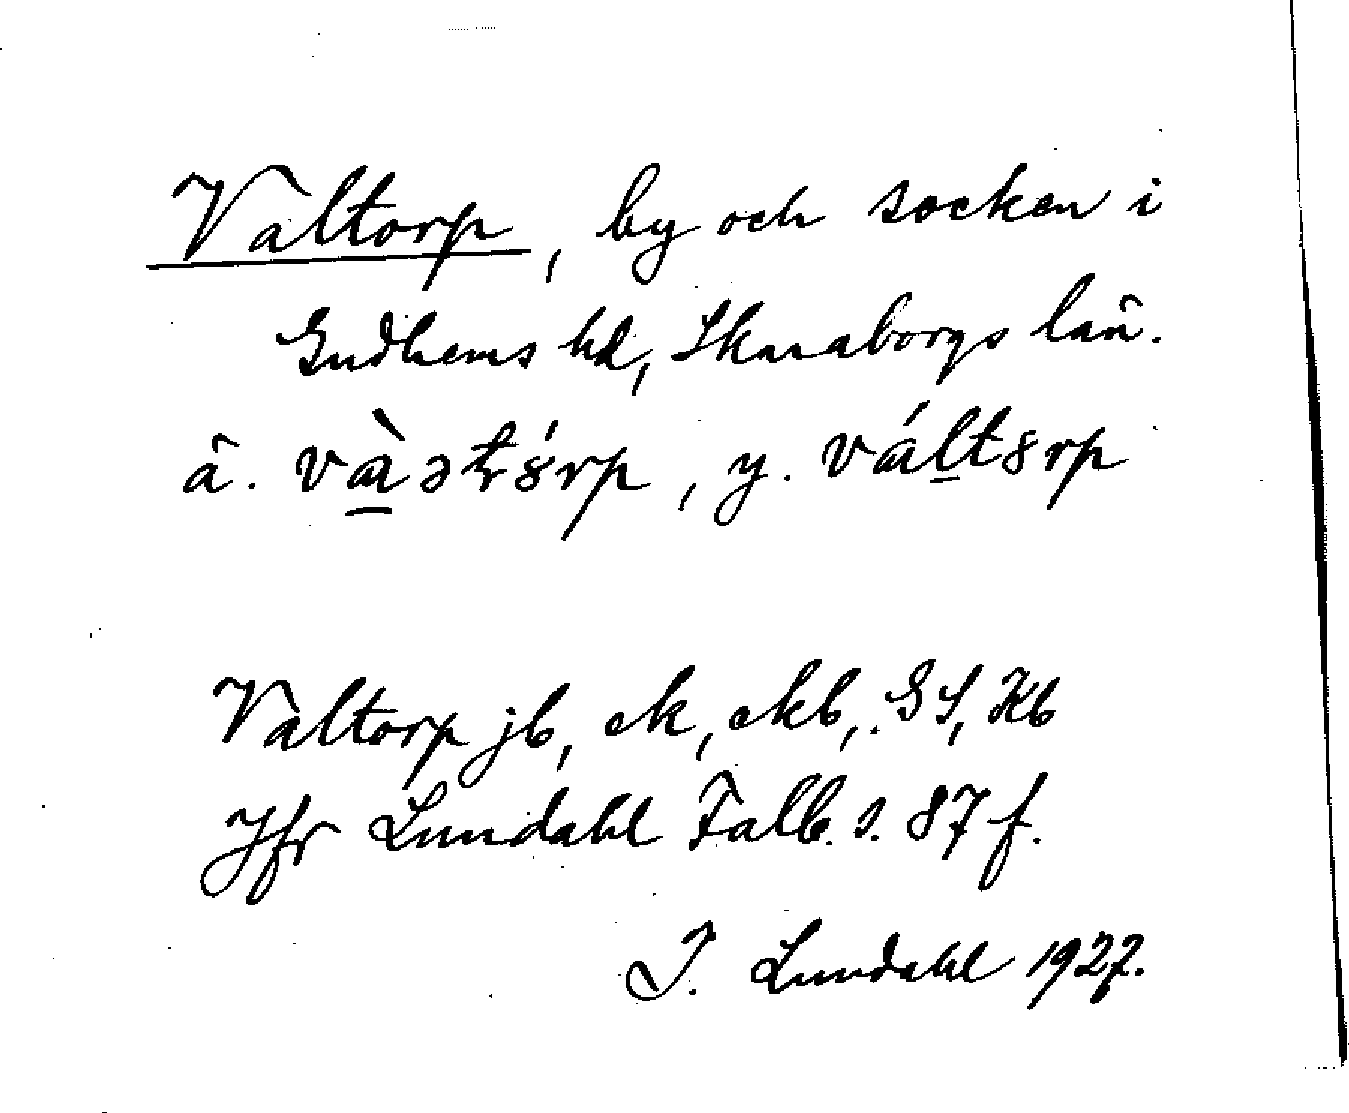 Valtorp, by och socken i
Gudhems hd, Skaraborgs län.
ä. và̱ətrs̀rp, y. váḻtsrp
Valtorp jb, ek, ekb, GS, Kb
Jfr Lundahl Falb. s. 87 f.
I. Lundahl 1927.